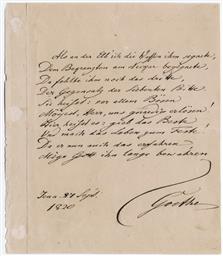 Als an der Elb' ich die Waffen ihm segnete,
Dem Bekreuzten am Neckar begegnete,
Da fehlte ihm noch das dritte,
Der Gegensatz der siebenten Bitte
Sie heisst: vor allem Bösen
Mög'st, Herr, uns erlösen!
Hier heisst es: gieb das Beste!
Und mach das Leben zum Feste!
Da er nun auch das erfahren
Möge Gott ihn lange bewahren
Jena Sept.
1820
Goethe